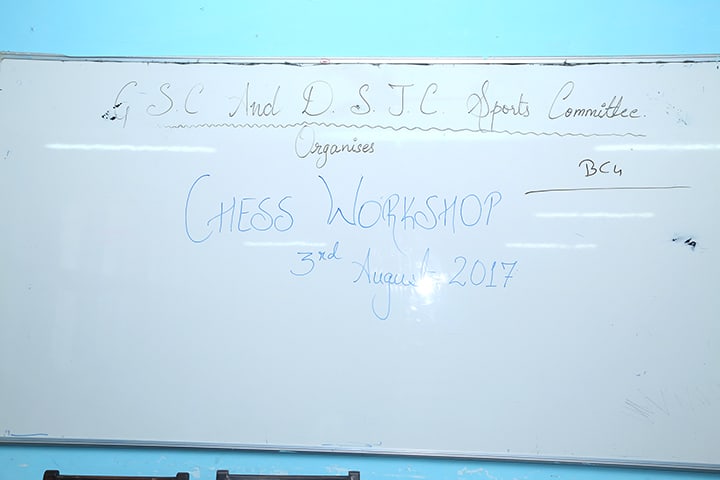 G S.C And D. S. J. C. Sports Committee.
Organises
BC4
CHESS WORKSHOP
3rd August 2017